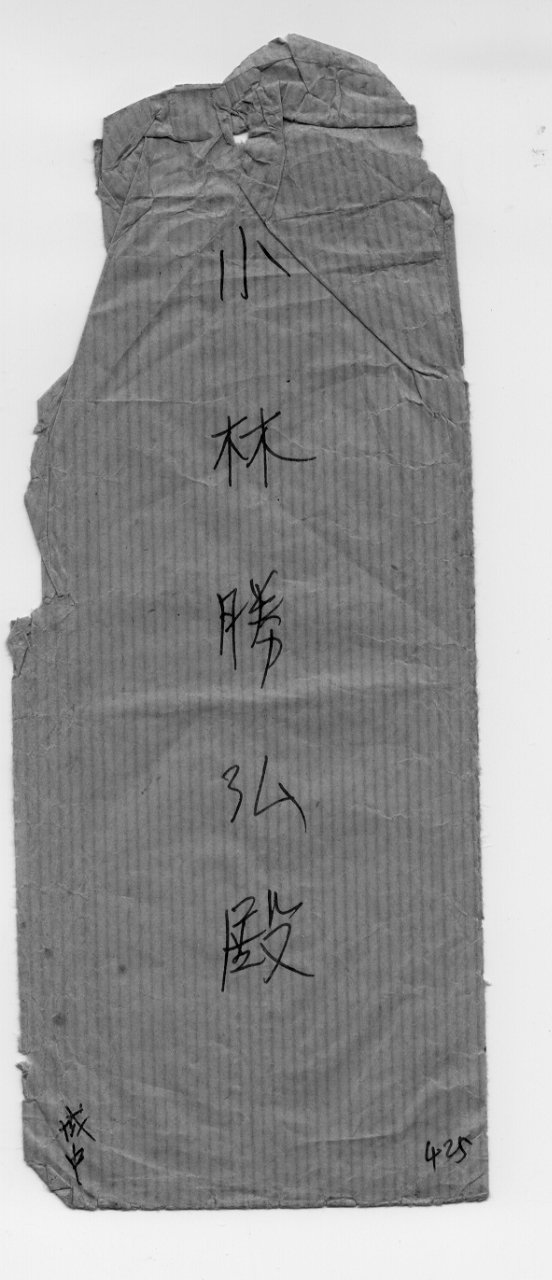 小林勝弘殿
4.25